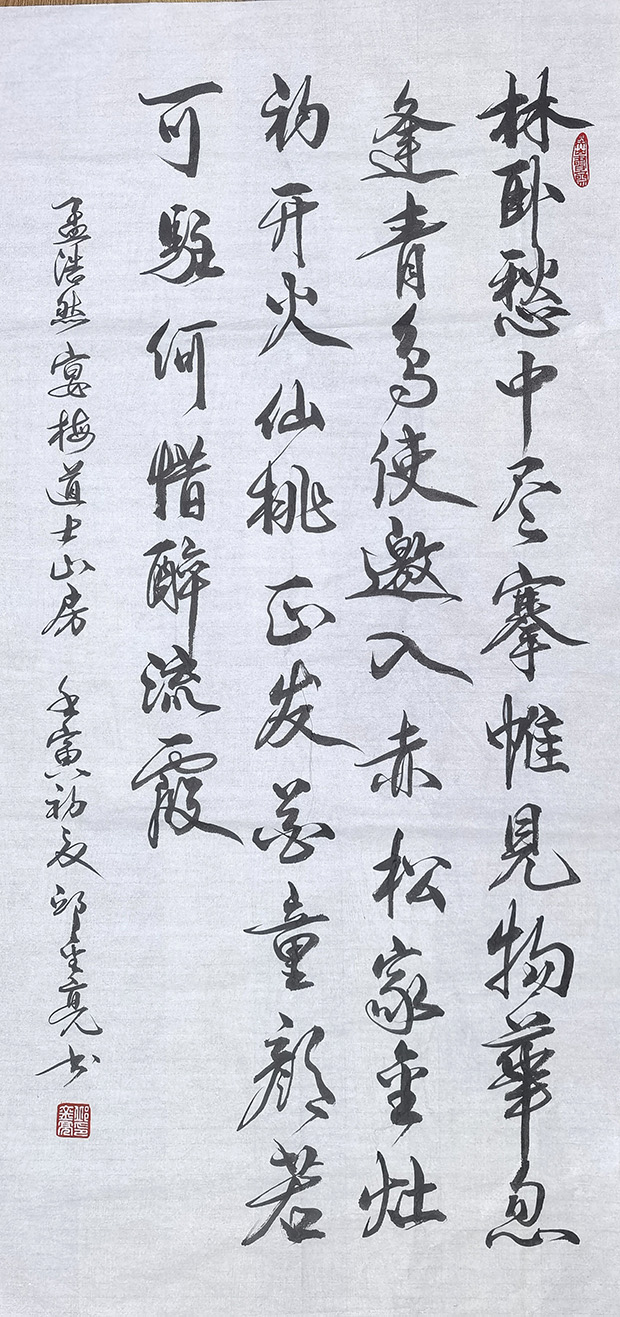 林卧愁中尽搴帷見物華忽
逢青鸟使邀入赤松家金灶
初开火仙桃正发花童顔若
可駐何惜醉流霞
孟浩然宴梅道士山房 壬寅初夏邱金亮书